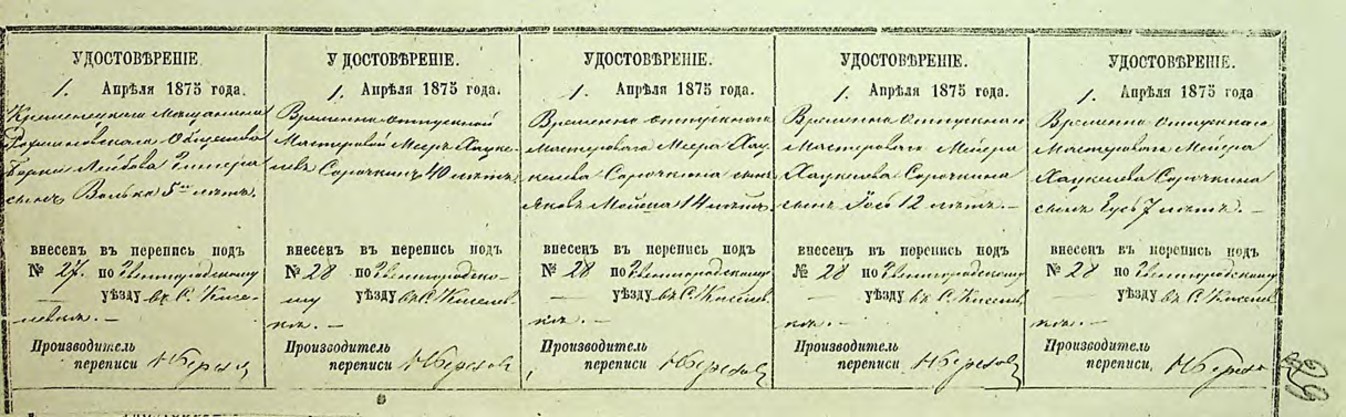 УДОСТОВѢРЕНІЕ
1. Апрѣля 1875 года.
Кременецкаго Мещанина
Общества
Берки Лейбова
сынъ Волько 5 лѣтъ.
внесенъ въ перепись подъ
№ 27. по Звенигородскому
уѣзду въ С. Кисе-
левкѣ. —
Производитель
переписи
УДОСТОВѢРЕНІЕ.
1. Апрѣля 1875 года.
Временно отпускной
Мастеровой Мееръ Хацке-
левъ Сорочкинъ 40 лѣтъ.
внесенъ въ перепись подъ
№ 28 по Звенигородско-
му уѣзду въ С. Киселев-
кѣ. —
Производитель
переписи
УДОСТОВѢРЕНІЕ.
1. Апрѣля 1875 года.
Временно отпускнаго
Мастероваго Меера Хац-
келева Сорочкина сынъ
Янкев Мойша 14 лѣтъ.
внесенъ въ перепись подъ
№ 28 по Звенигородскому
— уѣзду въ С. Киселев-
кѣ. —
Производитель
переписи
УДОСТОВѢРЕНІЕ.
1. Апрѣля 1875 года.
Временно отпускнаго
Мастероваго Мейера
Хацкелева Сорочкина
сынъ Іось 12 лѣтъ. —
внесенъ въ перепись подъ
№ 28 по Звенигородскому
— уѣзду въ С. Киселев-
кѣ. —
Производитель
переписи
УДОСТОВѢРЕНІЕ.
1. Апрѣля 1875 года
Временно отпускнаго
Мастероваго Мейера
Хацкелева Сорочкина
сынъ 7 лѣтъ. —
внесенъ въ перепись подъ
№ 28 по Звенигородскому
— уѣзду въ С. Киселев-
кѣ. —
Производитель
переписи,